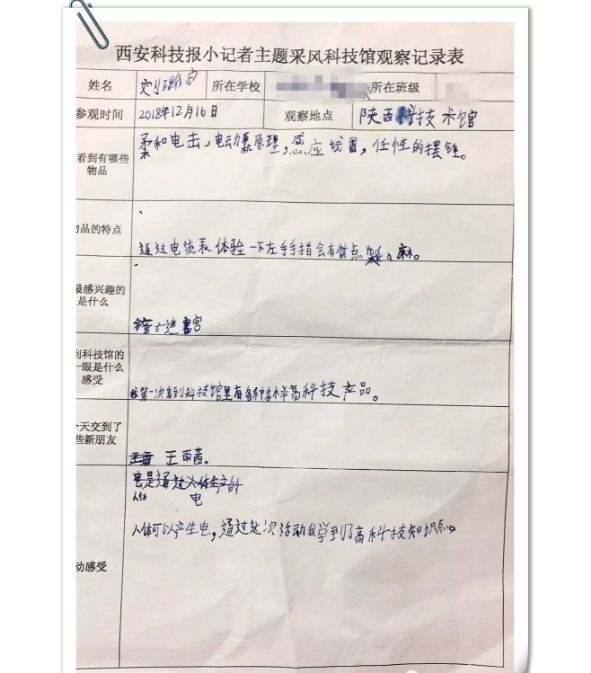 西安科技报小记者主题采风科技馆观察记录表
姓名 所在学校 所在班级
参观时间 2018年12月16日 观察地点 陕西科技术馆
看到有哪些物品 柔和电击，电动原理，感应线圈，任性的摆锤。
品的特点 通过电流表体验一下左手手指会有一点麻。
最感兴趣的是什么 迷宫
到科技馆的一眼是什么感受 第一次看到科技馆里有各种各样高科技产品。
天交到了些新朋友 王雨茜。
动感受 电是通过人体生产的
人体 电
人体可以产生电，通过此次活动我学到了高科技知识点。